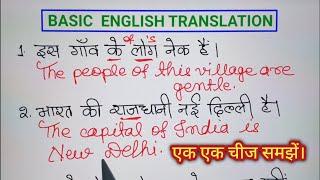 BASIC ENGLISH TRANSLATION
of 's
1. इस गाँव के लोग नेक हैं।
The people of this village are
gentle.
2. भारत की राजधानी नई दिल्ली है।
The capital of India is
New Delhi.
एक एक चीज समझें।